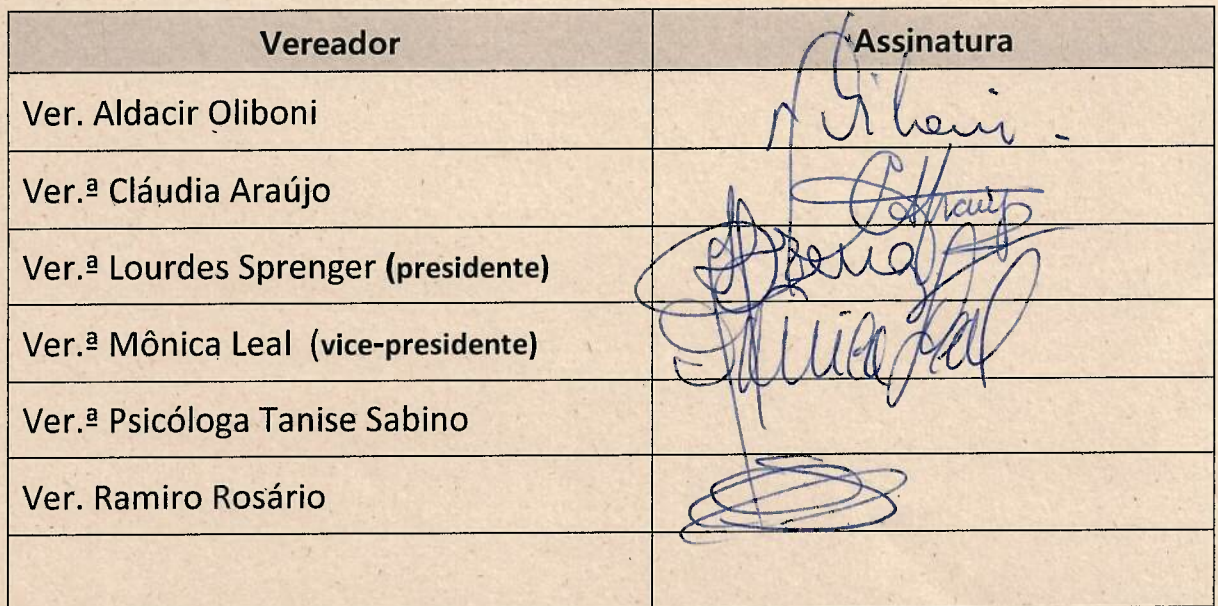 Vereador Assinatura
Ver. Aldacir Oliboni
Ver.ª Cláudia Araújo
Ver.ª Lourdes Sprenger (presidente)
Ver.ª Mônica Leal (vice-presidente)
Ver.ª Psicóloga Tanise Sabino
Ver. Ramiro Rosário